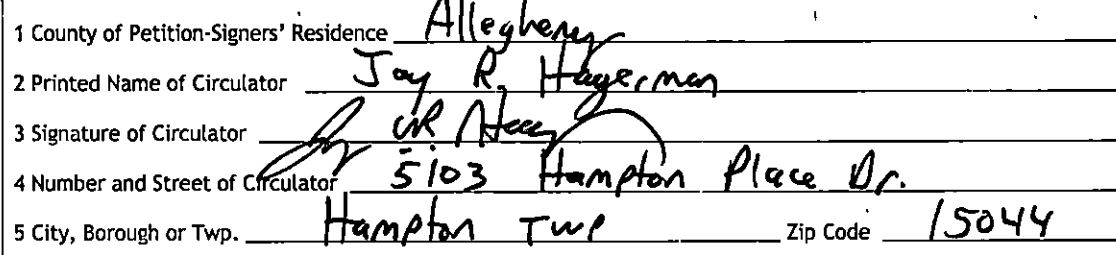 1 County of Petition-Signers' Residence Allegheny
2 Printed Name of Circulator Jay R. Hagerman
3 Signature of Circulator
4 Number and Street of Circulator 5103 Hampton Place Dr.
5 City, Borough or Twp. Hampton TWP Zip Code 15044